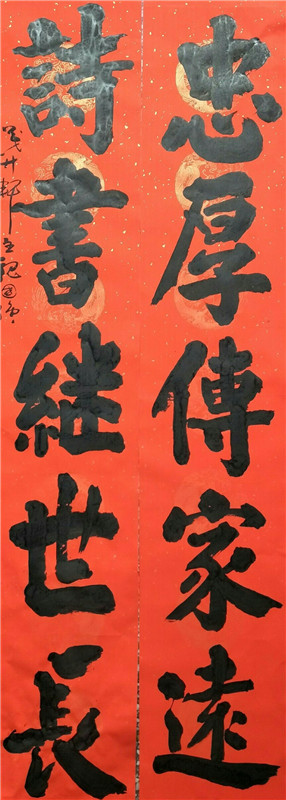 忠厚傳家遠
詩書継世長